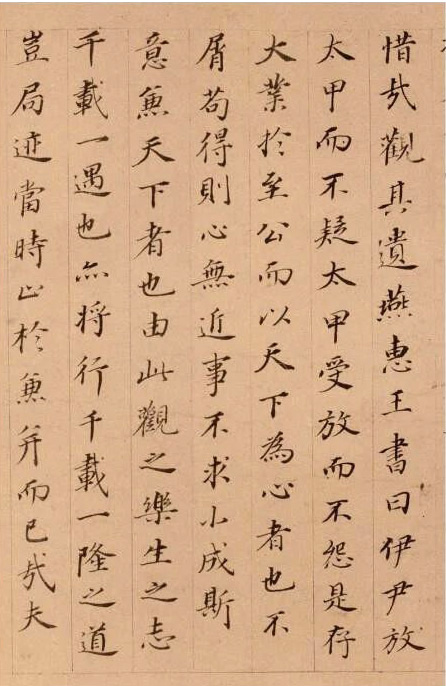 惜㢤觀其遺燕惠王書曰伊尹放
太甲而不疑太甲受放而不怨是存
大業於至公而以天下為心者也不
屑苟得則心無近事不求小成斯
意兼天下者也由此觀之樂生之志
千載一遇也亦将行千載一隆之道
豈局迹當時止於兼并而已㢤夫